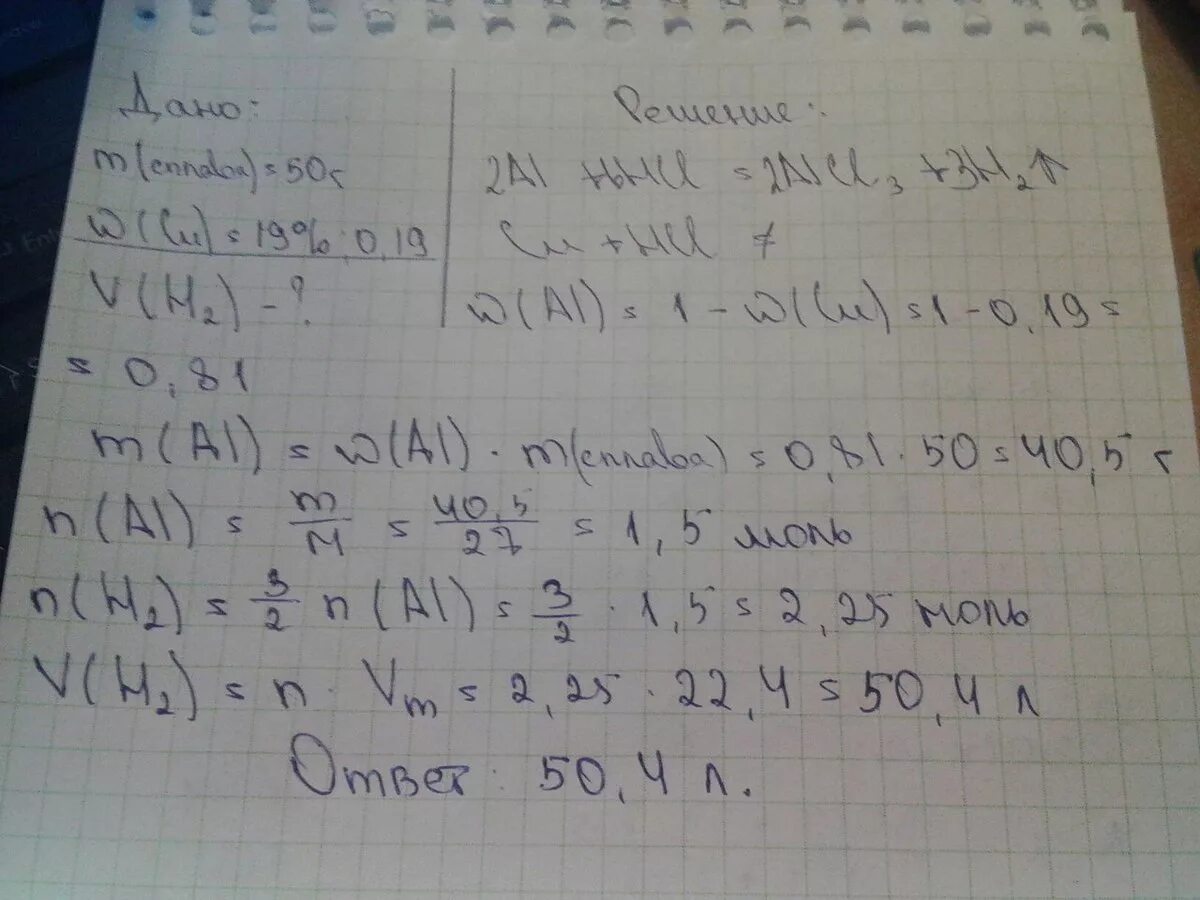 Дано:
m(сплава) = 50г
w(Cu) = 19%; 0,19
V(H₂) - ?
Решение:
2Al + 6HCl = 2AlCl₃ + 3H₂↑
Cu + HCl ≠
w(Al) = 1 - w(Cu) = 1 - 0,19 =
= 0,81
m(Al) = w(Al) · m(сплава) = 0,81 · 50 = 40,5 г
n(Al) = m/M = 40,5/27 = 1,5 моль
n(H₂) = 3/2 n(Al) = 3/2 · 1,5 = 2,25 моль
V(H₂) = n · Vm = 2,25 · 22,4 = 50,4 л
Ответ: 50,4 л.